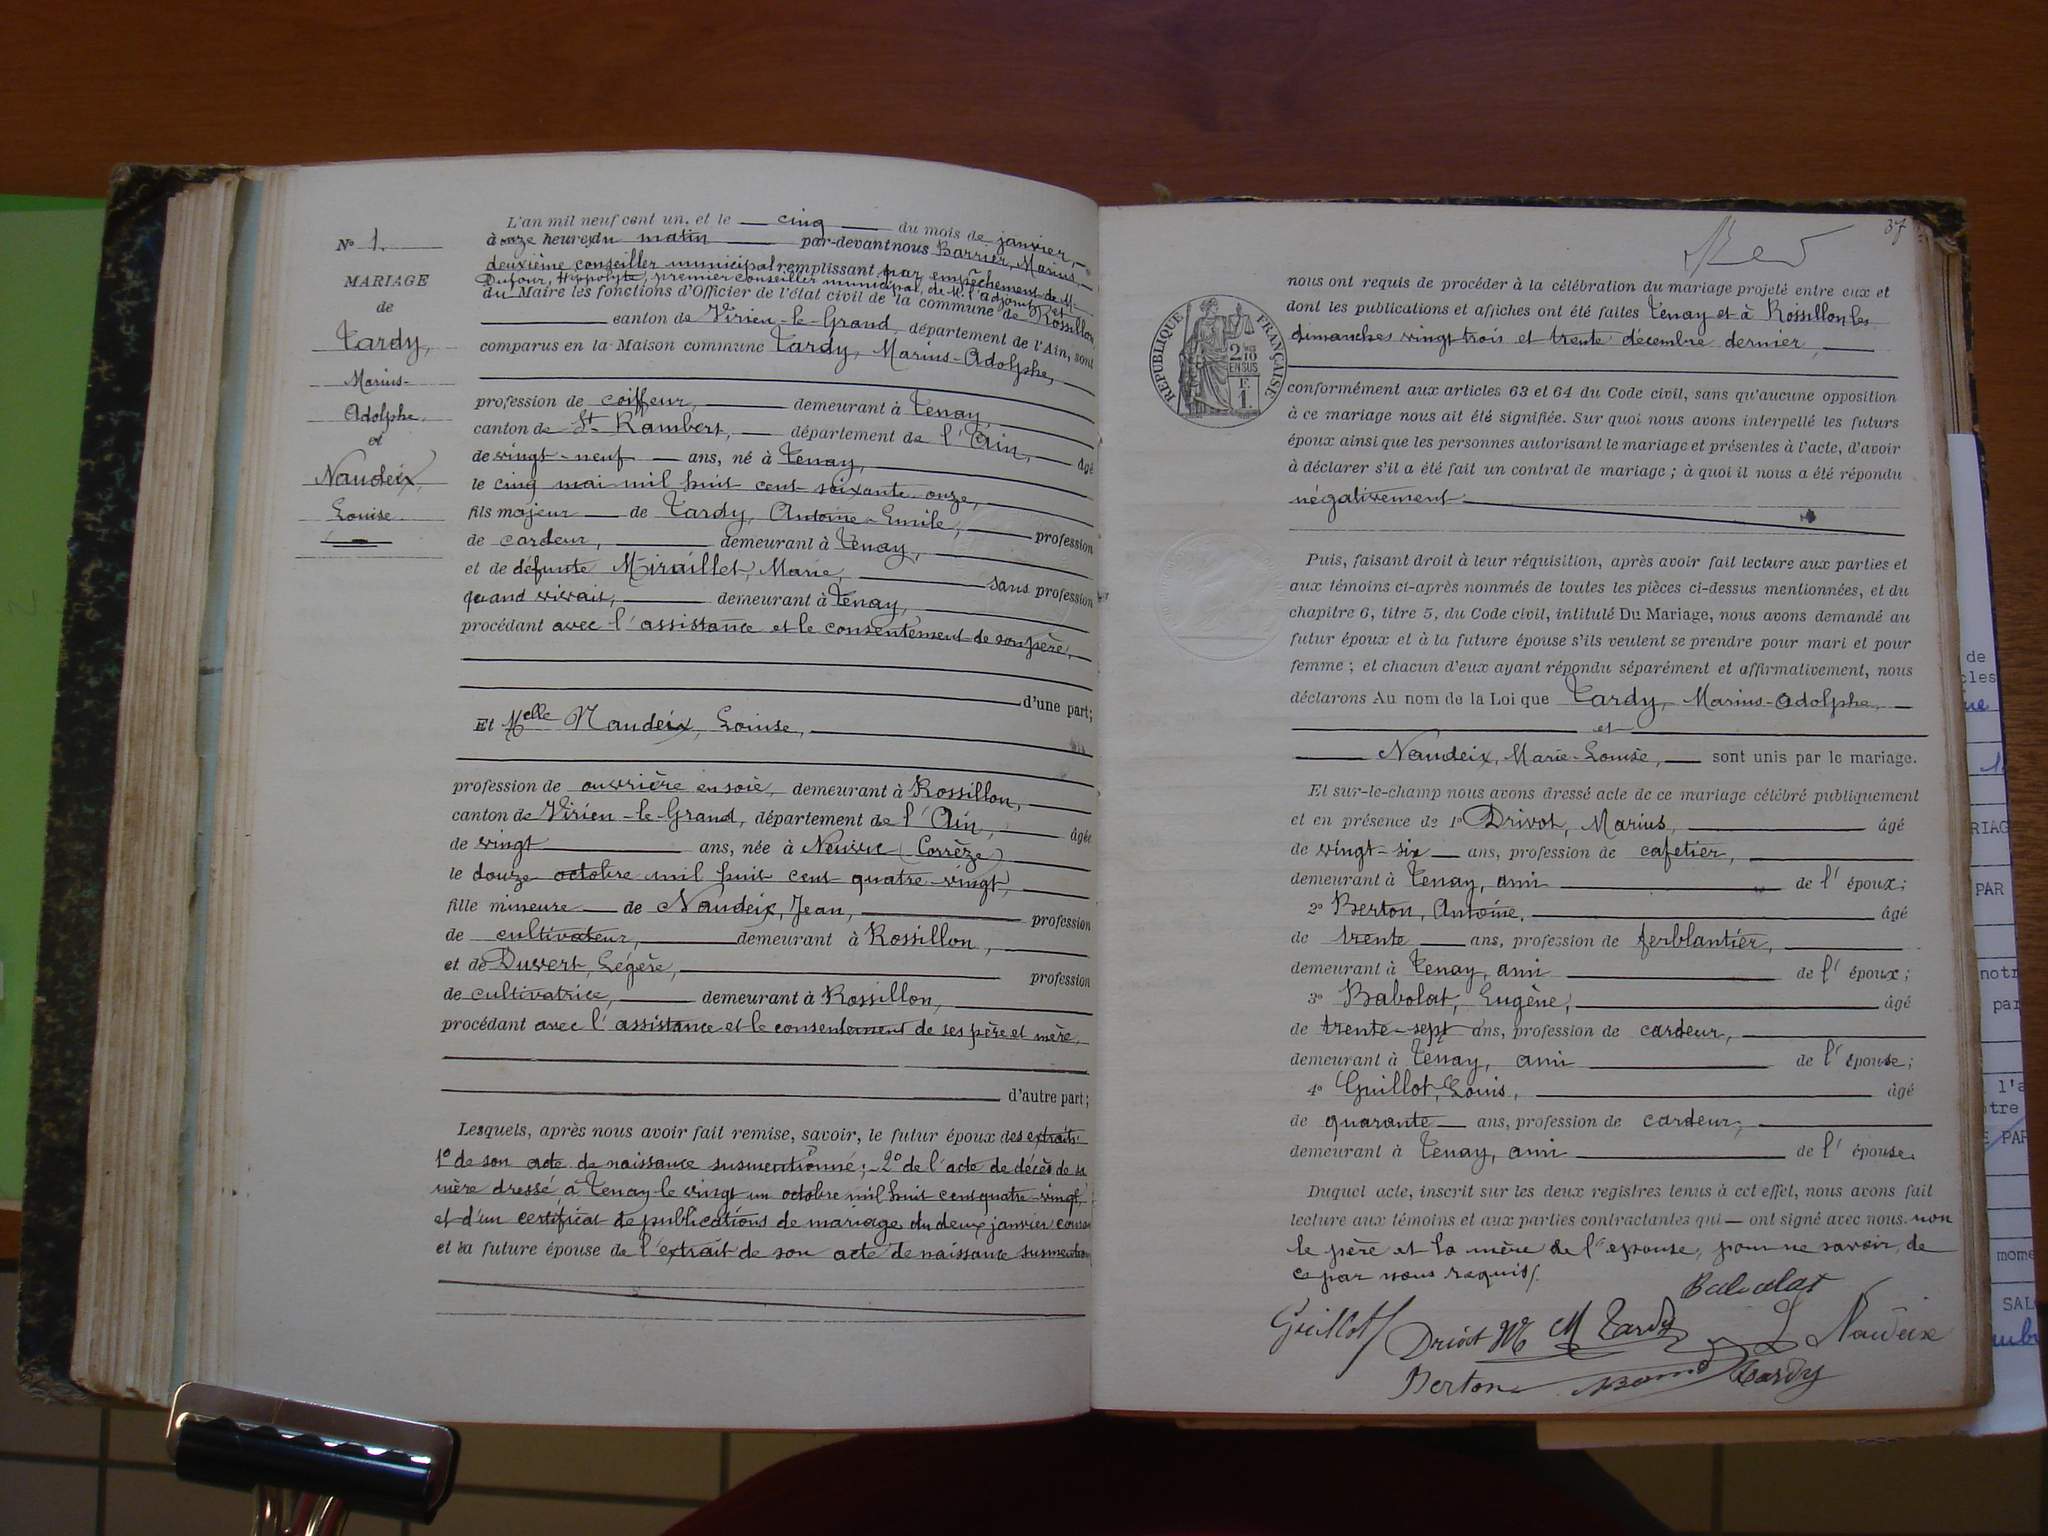 L'an mil neuf cent un, et le cinq du mois de janvier,
à onze heures du matin par-devant nous Barrier, Marius,
deuxième conseiller municipal remplissant par empêchement de M.
Dufour, Hippolyte, premier conseiller municipal, de M. l'adjoint et
du Maire les fonctions d'Officier de l'état civil de la commune de Rossillon,
canton de Virieu-le-Grand, département de l'Ain, sont
comparus en la Maison commune Tardy, Marius-Adolphe,
N° 1.
MARIAGE
de
Tardy,
Marius-
Adolphe.
et
Naudeix,
Louise.
profession de coiffeur, demeurant à Tenay,
canton de St Rambert, département de l'Ain, âgé
de vingt-neuf ans, né à Tenay,
le cinq mai mil huit cent soixante-onze,
fils majeur de Tardy, Antoine-Emile, profession
de cardeur, demeurant à Tenay,
et de défunte Miraillet, Marie, sans profession
quand vivait, demeurant à Tenay,
procédant avec l'assistance et le consentement de son père,
d'une part;
Et Melle Naudeix, Louise,
profession de ouvrière en soie, demeurant à Rossillon,
canton de Virieu-le-Grand, département de l'Ain, âgée
de vingt ans, née à Neuvic (Corrèze)
le douze octobre mil huit cent quatre-vingt,
fille mineure de Naudeix, Jean, profession
de cultivateur, demeurant à Rossillon,
et de Duvert, Légère, profession
de cultivatrice, demeurant à Rossillon,
procédant avec l'assistance et le consentement de ses père et mère,
d'autre part;
Lesquels, après nous avoir fait remise, savoir, le futur époux des extraits:
1° de son acte de naissance susmentionné; 2° de l'acte de décès de sa
mère dressé à Tenay le vingt un octobre mil huit cent quatre-vingt,
et d'un certificat de publications de mariage du deux janvier couran
et la future épouse de l'extrait de son acte de naissance susmention
37
RÉPUBLIQUE FRANÇAISE
2/10
EN SUS
F.
1.
nous ont requis de procéder à la célébration du mariage projeté entre eux et
dont les publications et affiches ont été faites Tenay et à Rossillon les
dimanches vingt trois et trente décembre dernier,
conformément aux articles 63 et 64 du Code civil, sans qu'aucune opposition
à ce mariage nous ait été signifiée. Sur quoi nous avons interpellé les futurs
époux ainsi que les personnes autorisant le mariage et présentes à l'acte, d'avoir
à déclarer s'il a été fait un contrat de mariage; à quoi il nous a été répondu
négativement
Puis, faisant droit à leur réquisition, après avoir fait lecture aux parties et
aux témoins ci-après nommés de toutes les pièces ci-dessus mentionnées, et du
chapitre 6, titre 5, du Code civil, intitulé Du Mariage, nous avons demandé au
futur époux et à la future épouse s'ils veulent se prendre pour mari et pour
femme; et chacun d'eux ayant répondu séparément et affirmativement, nous
déclarons Au nom de la Loi que Tardy, Marius-Adolphe,
et
Naudeix, Marie-Louise, sont unis par le mariage.
Et sur-le-champ nous avons dressé acte de ce mariage célébré publiquement
et en présence de 1° Drivot, Marius, âgé
de vingt-six ans, profession de cafetier,
demeurant à Tenay, ami de l'époux;
2° Berton, Antoine, âgé
de trente ans, profession de ferblantier,
demeurant à Tenay, ami de l'époux;
3° Babolat, Eugène, âgé
de trente-sept ans, profession de cardeur,
demeurant à Tenay, ami de l'épouse;
4° Guillot, Louis, âgé
de quarante ans, profession de cardeur,
demeurant à Tenay, ami de l'épouse.
Duquel acte, inscrit sur les deux registres tenus à cet effet, nous avons fait
lecture aux témoins et aux parties contractantes qui ont signé avec nous. non
le père et la mère de l'épouse, pour ne savoir, de
ce par nous requis.
Babolat
Guillot Drivot M M Tardy L Naudeix
Berton Tardy
de
cles
RIAG
PAR
notr
par
l'a
otre
PAR
mome
SAL